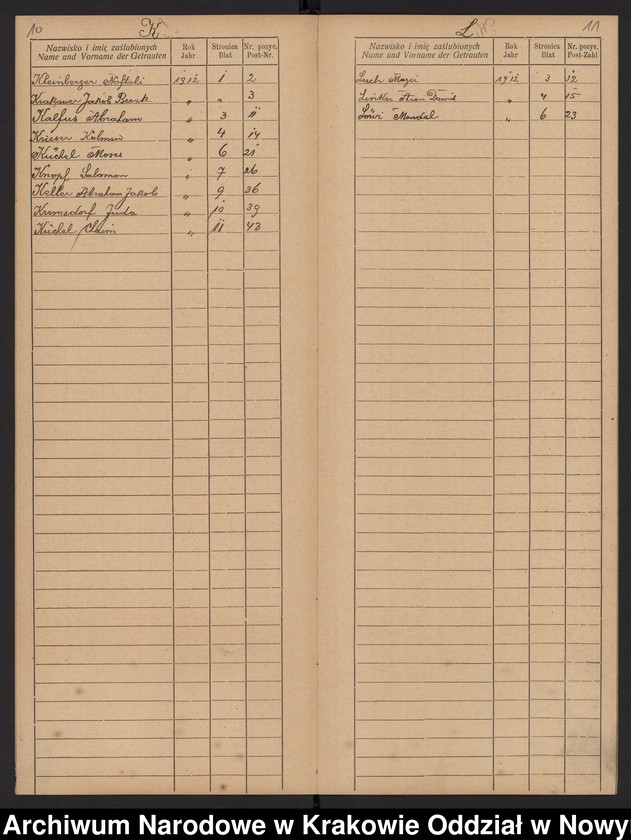 10
K
Nazwisko i imię zaślubionych
Name und Vorname der Getrauten
Rok
Jahr
Stronica
Blat
Nr. pozyc.
Post-Nr.
Kleinberger Naftali 1912 1 2
Krakauer Jakób Berak „ „ 3
Kalfus Abraham „ 3 11
Krieser Kalman „ 4 14
Küchel Moses „ 6 21
Knopf Salamon „ 7 26
Keller Abraham Jakob „ 9 36
Kremsdorf Juda „ 10 39
Küchel Chaim „ 11 43
L
11
Nazwisko i imię zaślubionych
Name und Vorname der Getrauten
Rok
Jahr
Stronica
Blatt
Nr. pozyc.
Post-Zahl
Lerch 1912 3 12
Linker Aron Dawid „ 4 15
Löwi Mendel „ 6 23
Archiwum Narodowe w Krakowie Oddział w Nowy